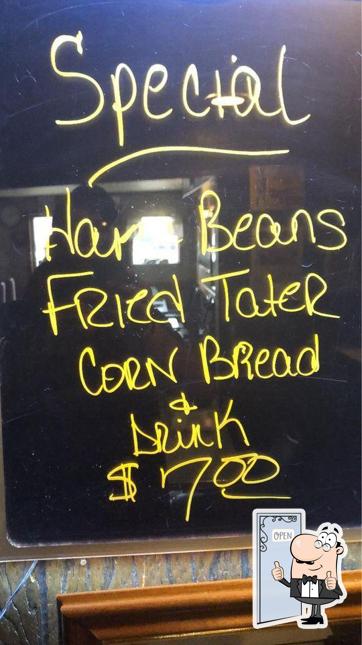 Special
Ham & Beans
Fried Tater
Corn Bread
&
Drink
$ 7.00
OPEN